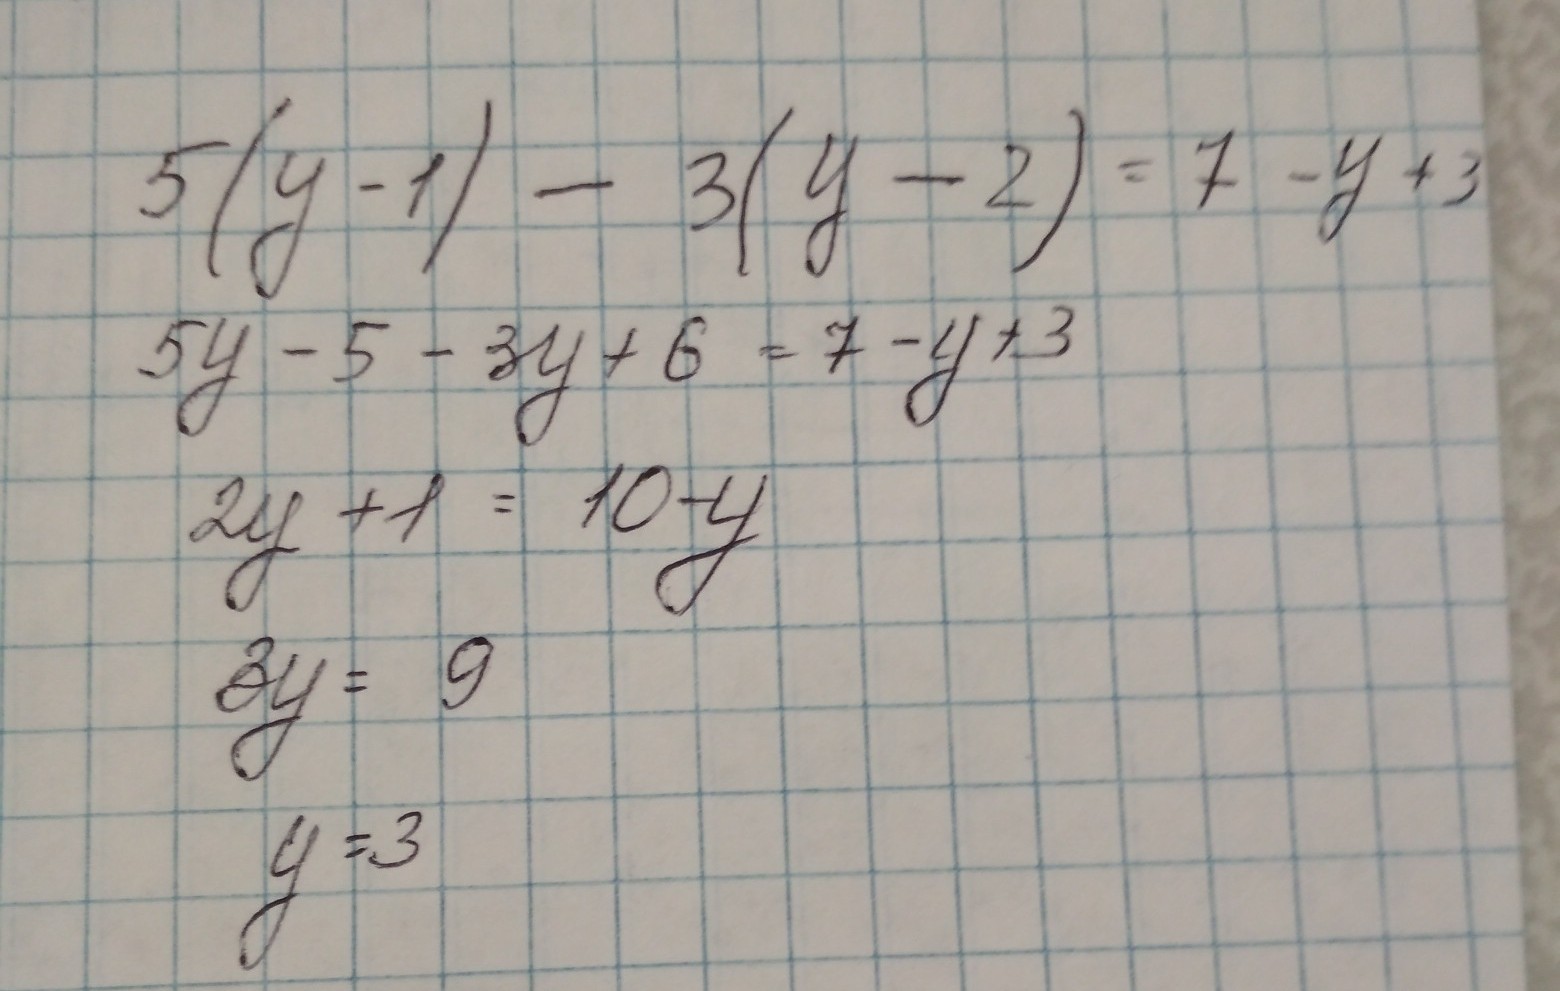 5(y-1) - 3(y-2) = 7 -y +3
5y - 5 - 3y + 6 = 7 -y +3
2y +1 = 10-y
3y = 9
y =3